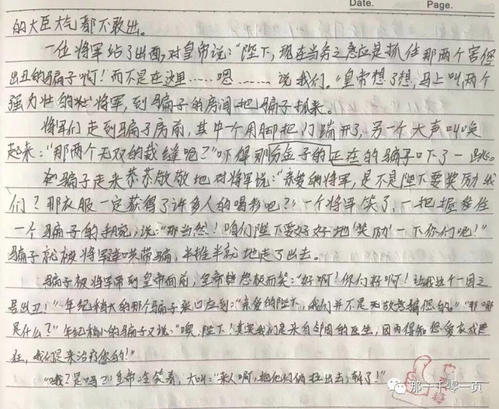 Date. Page.
的大臣大气都不敢出。
一位将军站了出面，对皇帝说：“陛下，现在当务之急应是抓住那两个害您
出丑的骗子啊！而不是在这里……嗯……说我们。”皇帝想了想，马上叫两个
强力壮的 将军，到骗子的房间把骗子抓来。
将军们走到骗子房前，其中一个用脚把门踹开了，另一个大声叫唤
起来：“那两个无双的裁缝呢？”吓得那 金子的正在的骗子 下了一跳。
骗子走来恭恭敬敬地对将军说：“亲爱的将军，是不是陛下要奖励我
们？那衣服一定获得了许多人的喝彩吧？”一个将军笑了，一把握
一个骗子的 说：“那当然！咱们陛下要好好地‘奖励’一下你们呢！”
骗子就被将军 带骗，半推半就地走了出去。
骗子被将军带到皇帝面前，皇帝 极而笑：“好啊！你们好啊！让我这个一国之
君出丑！”年纪稍大的那个骗子 ：“亲爱的陛下，我们并不是 您的。”“那
是什么？”年纪稍小的骗子又说：“噢，陛下！其实我们是来自邻国的医生，因为得知您
，我们是来治疗您的！”
“哦？是吗？”皇帝冷笑着，大叫：“来人啊，把他们俩拉出去，斩了！”
那一千零一页